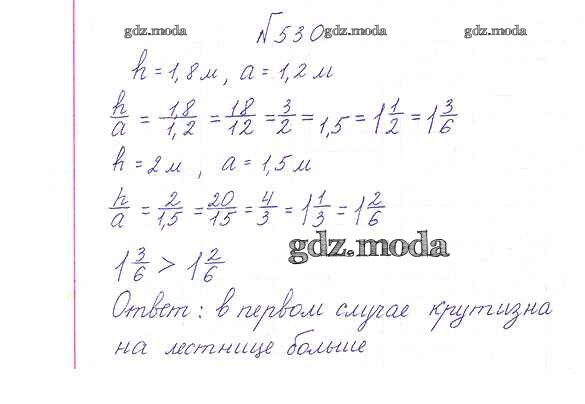 №530
gdz.moda gdz.moda gdz.moda
h = 1,8 м, a = 1,2 м
h/a = 1,8/1,2 = 18/12 = 3/2 = 1,5 = 1 1/2 = 1 3/6
h = 2 м, a = 1,5 м
h/a = 2/1,5 = 20/15 = 4/3 = 1 1/3 = 1 2/6
gdz.moda
1 3/6 > 1 2/6
Ответ: в первом случае крутизна
на лестнице больше